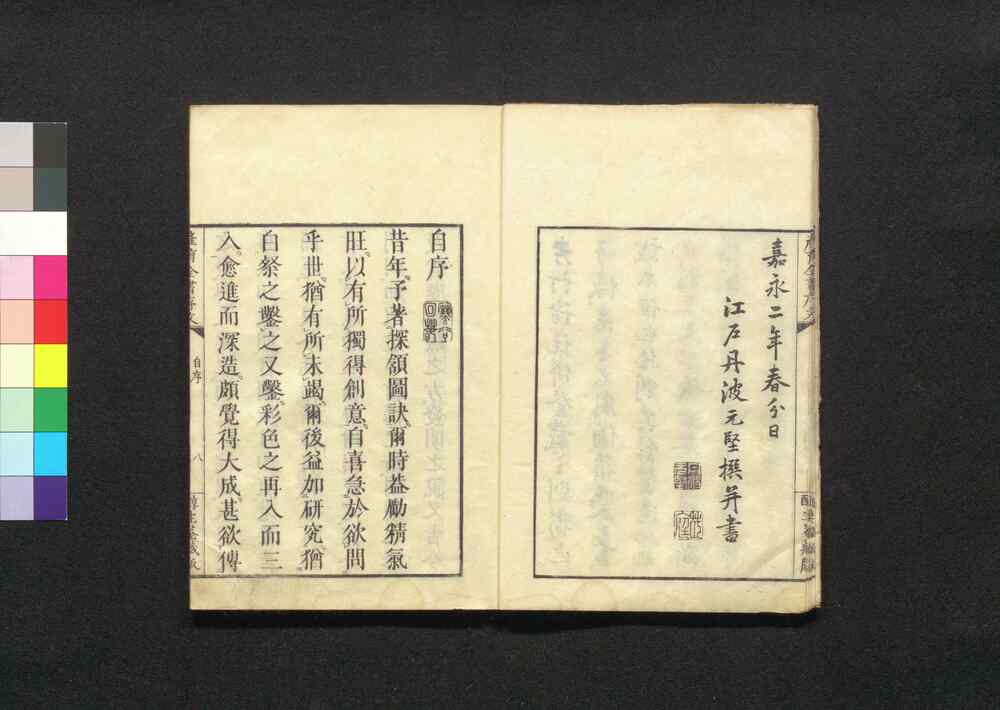 嘉永二年春分日
江戸丹波元堅撰并書
自序
昔年予著探頷圖訣爾時益勵精氣
旺以有所獨得創意自喜急於欲問
乎世猶有所未竭爾後益加研究猶
白粲之鑿之又鑿彩色之再入而三
入愈進而深造頗覺得大成甚欲傳
自序
八